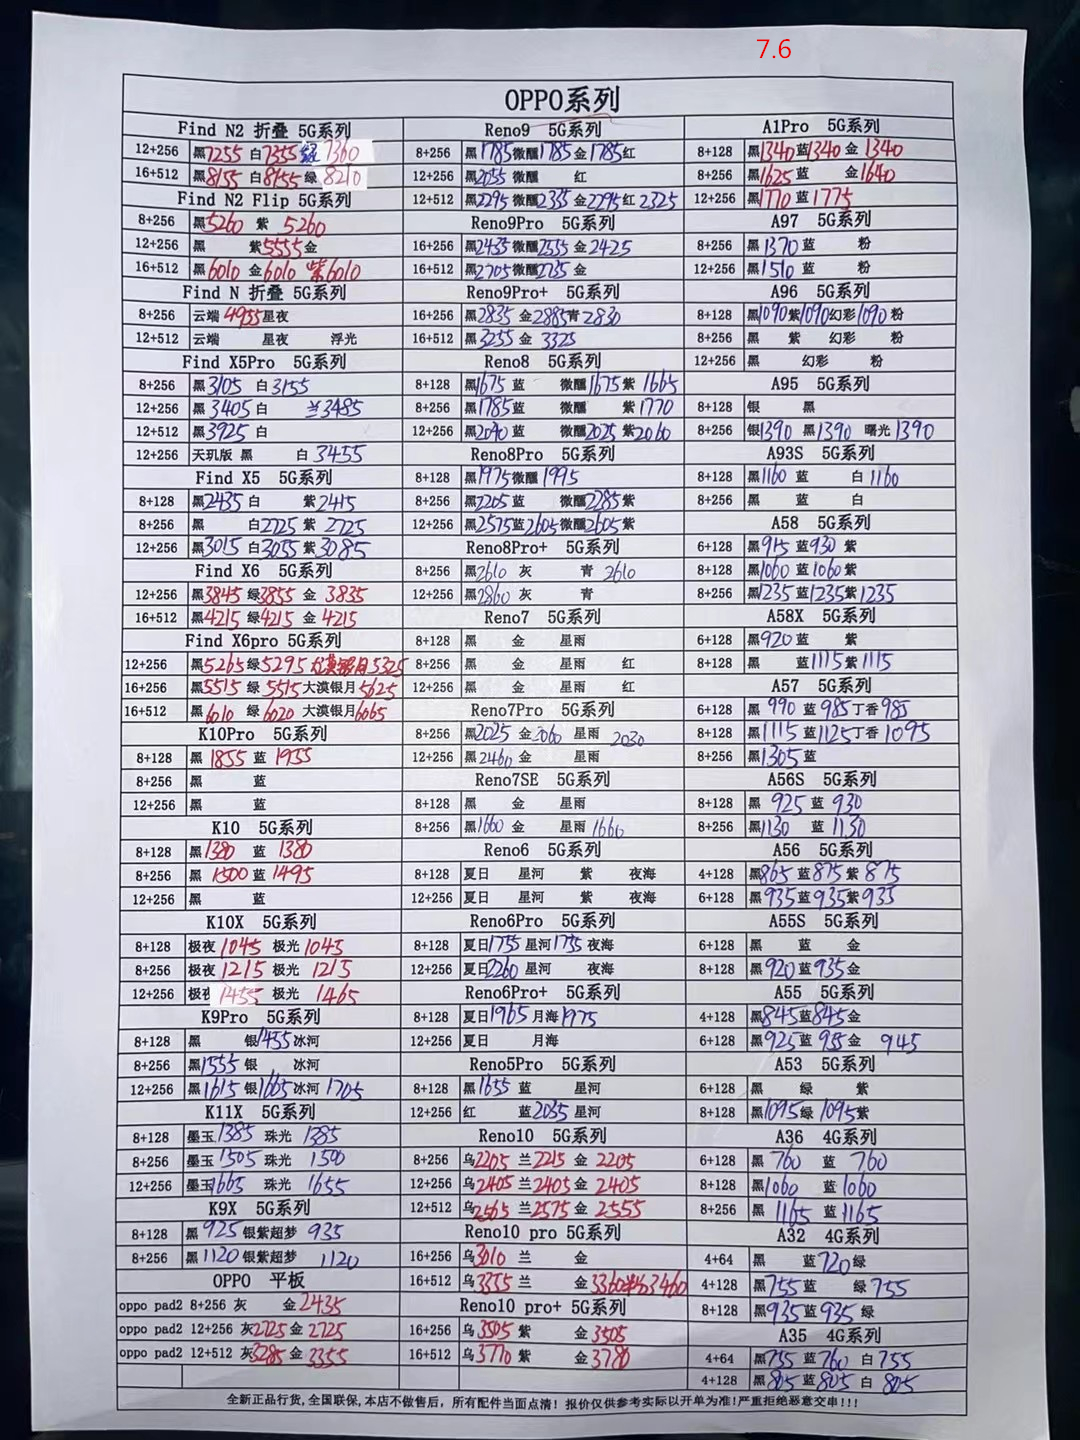 7.6
OPPO系列
Find N2 折叠 5G系列
12+256 黑7255 白7355 绿 7360
16+512 黑8155 白8155 绿 8210
Find N2 Flip 5G系列
8+256 黑5260 紫 5260
12+256 黑 紫5555金
16+512 黑6010 金6010 紫6010
Find N 折叠 5G系列
8+256 云端 4955星夜
12+512 云端 星夜 浮光
Find X5Pro 5G系列
8+256 黑3105 白3155
12+256 黑3405白 兰3485
12+512 黑3925 白
12+256 天玑版 黑 白 3455
Find X5 5G系列
8+128 黑2435白 紫2415
8+256 黑 白2725 紫 2725
12+256 黑3015 白3055 紫3085
Find X6 5G系列
12+256 黑3845 绿3855 金 3835
16+512 黑4215 绿4215 金 4215
Find X6pro 5G系列
12+256 黑5265绿5295 大漠银月5325
16+256 黑5515 绿 5515大漠银月5625
16+512 黑6010 绿 6020 大漠银月6065
K10Pro 5G系列
8+128 黑 1855 蓝 1955
8+256 黑 蓝
12+256 黑 蓝
K10 5G系列
8+128 黑1380 蓝 1380
8+256 黑 1500 蓝1495
12+256 黑 蓝
K10X 5G系列
8+128 极夜 1045 极光 1045
8+256 极夜 1215 极光 1215
12+256 极夜 1455 极光 1465
K9Pro 5G系列
8+128 黑 银1455冰河
8+256 黑1555银 冰河
12+256 黑1615 银1665冰河 1705
K11X 5G系列
8+128 墨玉1385 珠光 1385
8+256 墨玉1505 珠光 1500
12+256 墨玉1665 珠光 1655
K9X 5G系列
8+128 黑 925 银紫超梦 935
8+256 黑 1120 银紫超梦 1120
OPPO 平板
oppo pad2 8+256 灰 金2435
oppo pad2 12+256 灰2725金 2725
oppo pad2 12+512 灰3285金 3355
Reno9 5G系列
8+256 黑1785微醺1785 金1785红
12+256 黑2055 微醺 红
12+512 黑2295 微醺2335 金2295红 2325
Reno9Pro 5G系列
16+256 黑2435微醺2535 金2425
16+512 黑2705微醺2735 金
Reno9Pro+ 5G系列
16+256 黑2835 金2885青2830
16+512 黑3255 金 3325
Reno8 5G系列
8+128 黑1675 蓝 微醺1675紫 1665
8+256 黑1785蓝 微醺 紫1770
12+256 黑2090 蓝 微醺2025 紫2060
Reno8Pro 5G系列
8+128 黑1975微醺1995
8+256 黑2205蓝 微醺2285紫
12+256 黑2575蓝2605微醺2605紫
Reno8Pro+ 5G系列
8+256 黑2610 灰 青 2610
12+256 黑2860 灰 青
Reno7 5G系列
8+128 黑 金 星雨
8+256 黑 金 星雨 红
12+256 黑 金 星雨 红
Reno7Pro 5G系列
8+256 黑2025 金2060 星雨 2030
12+256 黑2460金 星雨
Reno7SE 5G系列
8+128 黑 金 星雨
8+256 黑1660 金 星雨 1660
Reno6 5G系列
8+128 夏日 星河 紫 夜海
12+256 夏日 星河 紫 夜海
Reno6Pro 5G系列
8+128 夏日1755 星河1755 夜海
12+256 夏日2260 星河 夜海
Reno6Pro+ 5G系列
8+128 夏日1965 月海1975
12+256 夏日 月海
Reno5Pro 5G系列
8+128 黑1655 蓝 星河
12+256 红 蓝2035 星河
Reno10 5G系列
8+256 乌2205 兰2215 金 2205
12+256 乌2405 兰2405金 2405
12+512 乌2565 兰2575金 2555
Reno10 pro 5G系列
16+256 乌3010 兰 金
16+512 乌3355兰 金3360 3460
Reno10 pro+ 5G系列
16+256 乌3505 紫 金3505
16+512 乌3770 紫 金3780
A1Pro 5G系列
8+128 黑1340蓝1340 金 1340
8+256 黑1625 蓝 金1640
12+256 黑1770 蓝 1775
A97 5G系列
8+256 黑1370 蓝 粉
12+256 黑1510 蓝 粉
A96 5G系列
8+128 黑1090紫1090幻彩1090 粉
8+256 黑 紫 幻彩 粉
12+256 黑 幻彩 粉
A95 5G系列
8+128 银 黑
8+256 银1390 黑1390 曙光 1390
A93S 5G系列
8+128 黑1160 蓝 白 1160
8+256 黑 蓝 白
A58 5G系列
6+128 黑915 蓝930 紫
8+128 黑1060 蓝1060紫
8+256 黑1235 蓝1235紫1235
A58X 5G系列
6+128 黑920蓝 紫
8+128 黑 蓝1115紫1115
A57 5G系列
6+128 黑 990 蓝985丁香985
8+128 黑1115蓝1125丁香1095
8+256 黑1305蓝
A56S 5G系列
8+128 黑 925 蓝 930
8+256 黑1130 蓝 1130
A56 5G系列
4+128 黑865 蓝875紫 875
6+128 黑935蓝935紫935
A55S 5G系列
6+128 黑 蓝 金
8+128 黑920蓝935金
A55 5G系列
4+128 黑845蓝845金
6+128 黑925蓝 935金 945
A53 5G系列
6+128 黑 绿 紫
8+128 黑1095绿 1095紫
A36 4G系列
6+128 黑 760 蓝 760
8+128 黑1060 蓝 1060
8+256 黑 1165 蓝1165
A32 4G系列
4+64 黑 蓝720绿
4+128 黑755蓝 绿 755
8+128 黑935蓝935 绿
A35 4G系列
4+64 黑755 蓝760 白755
4+128 黑 805 蓝805 白 805
全新正品行货,全国联保,本店不做售后，所有配件当面点清！报价仅供参考实际以开单为准!严重拒绝恶意交串!!!